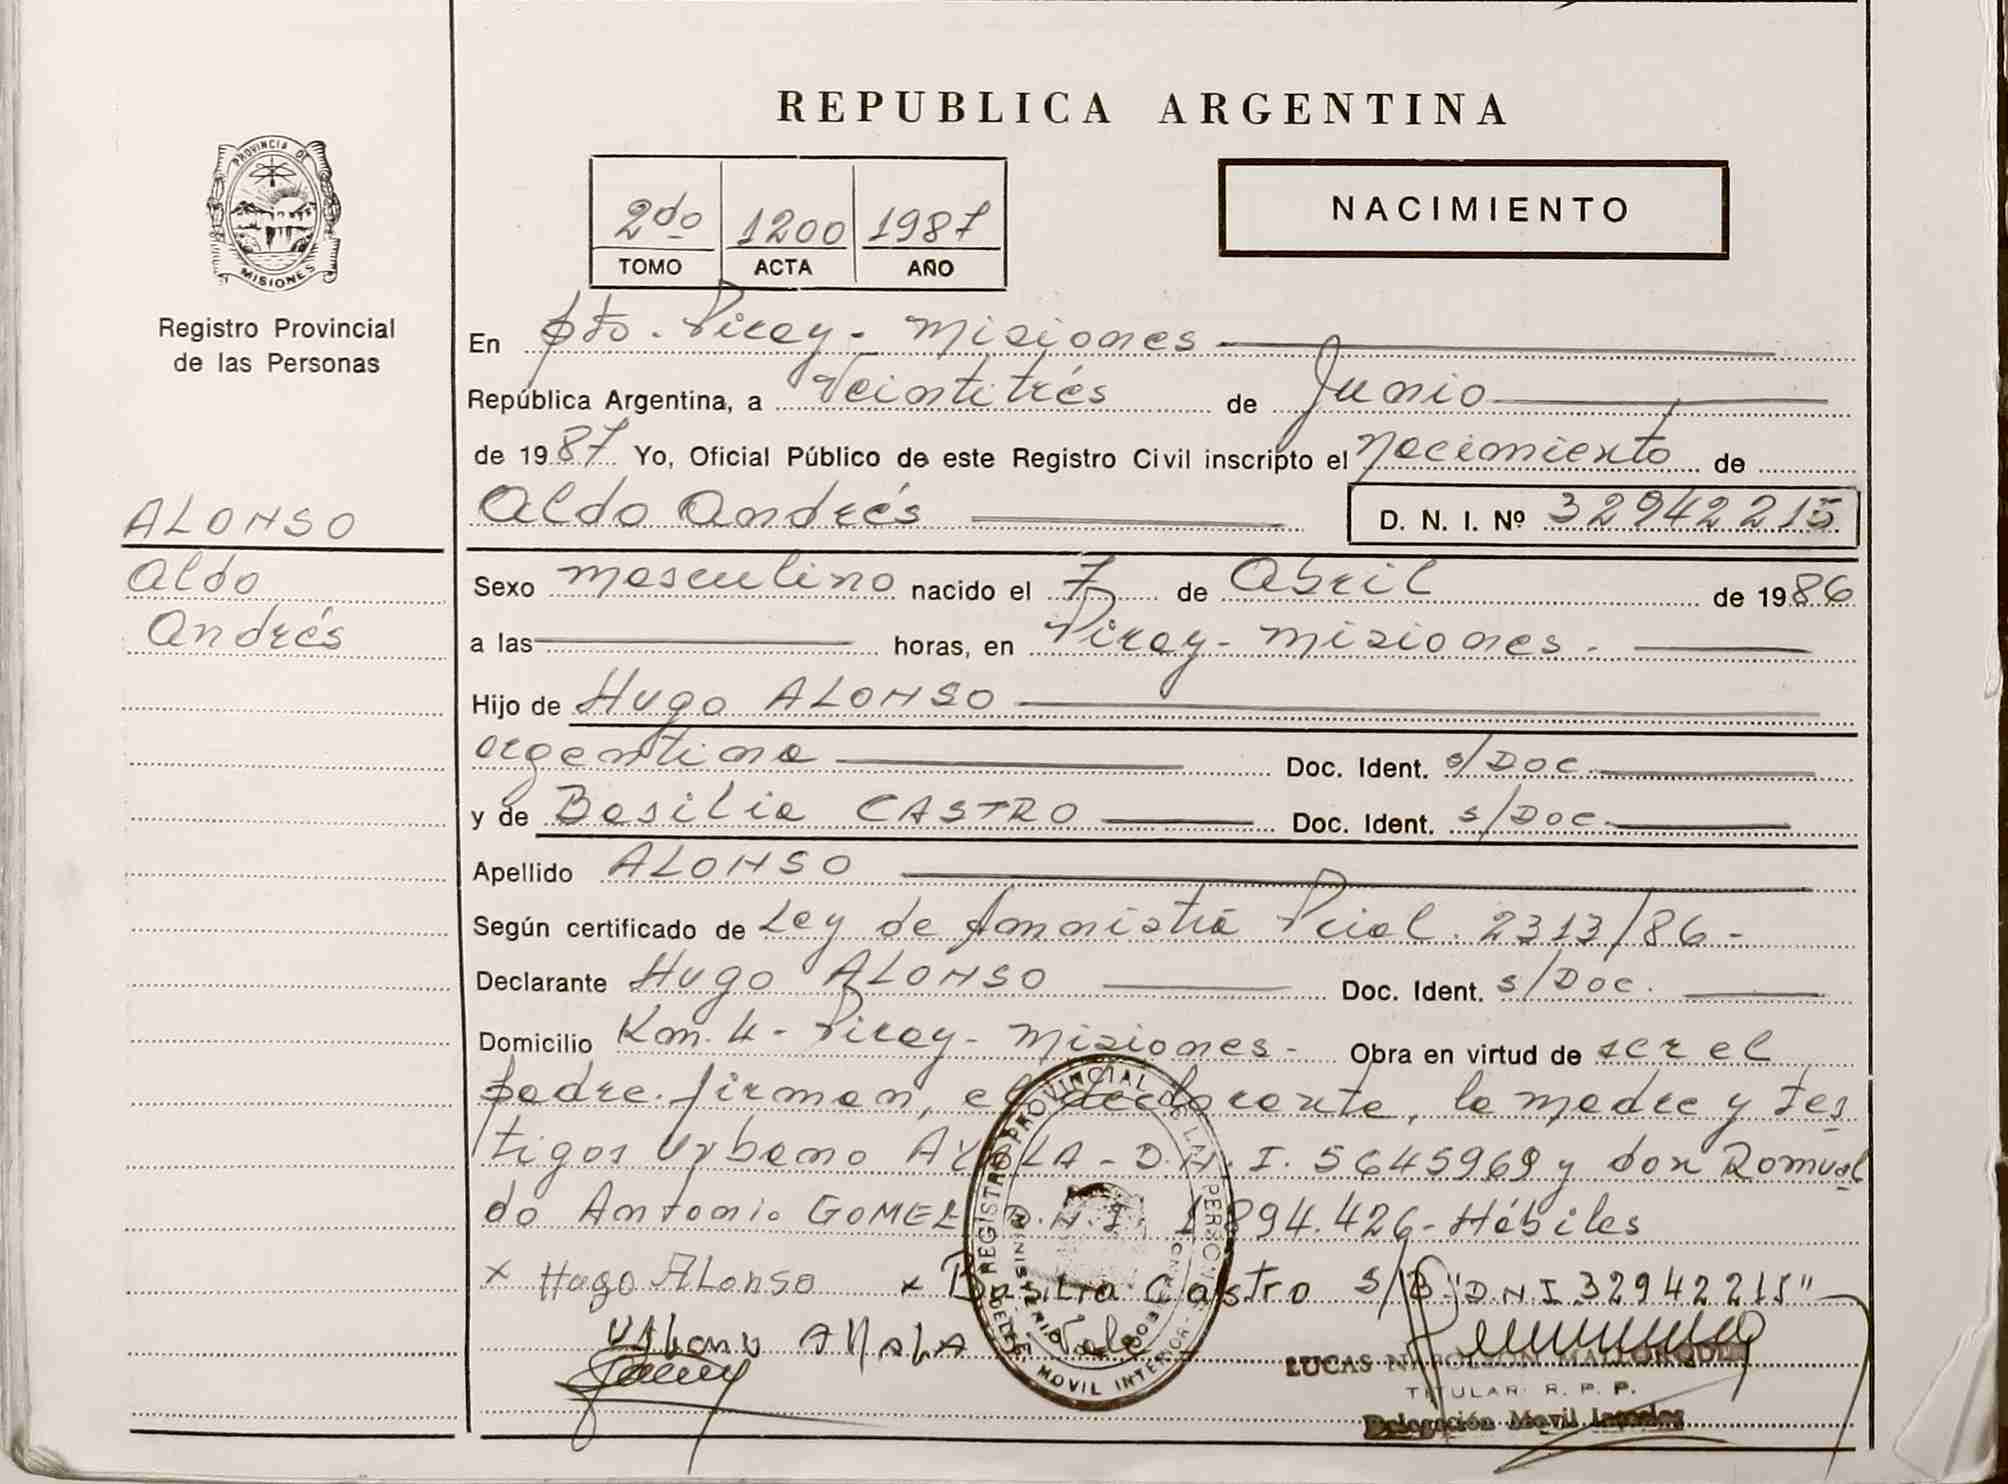 REPUBLICA ARGENTINA
PROVINCIA DE
MISIONES
Registro Provincial
de las Personas
2do 1200 1987
TOMO ACTA AÑO
NACIMIENTO
En pto. Piray - Misiones
República Argentina, a Veintitrés de Junio
de 1987 Yo, Oficial Público de este Registro Civil inscripto el Nacimiento de
Aldo Andrés D. N. I. Nº 32942215
ALONSO
Aldo
Andrés
Sexo masculino nacido el 7 de Abril de 1986
a las horas, en Piray - Misiones.
Hijo de Hugo ALONSO
argentino Doc. Ident. s/Doc
y de Basilia CASTRO Doc. Ident. s/Doc
Apellido ALONSO
Según certificado de Ley de Amnistía Pcial. 2313/86 -
Declarante Hugo ALONSO Doc. Ident. s/Doc.
Domicilio Km. 4 - Piray - Misiones - Obra en virtud de ser el
padre. firman, el declarante, la madre y tes
tigos Urbano AYALA - D.N.I. 5645969 y don Romual
do Antonio GOMEZ D.N.I. 894.426 - Hábiles
x Hugo ALonso x Basilia Castro s/B "D.N.I 32942215"
Urbano AYALA Vale
REGISTRO PROVINCIAL DE LAS PERSONAS
MINISTERIO DE GOBIERNO
MOVIL INTERIOR
LUCAS NAPOLEON
TITULAR R. P. P.
Delegación Movil